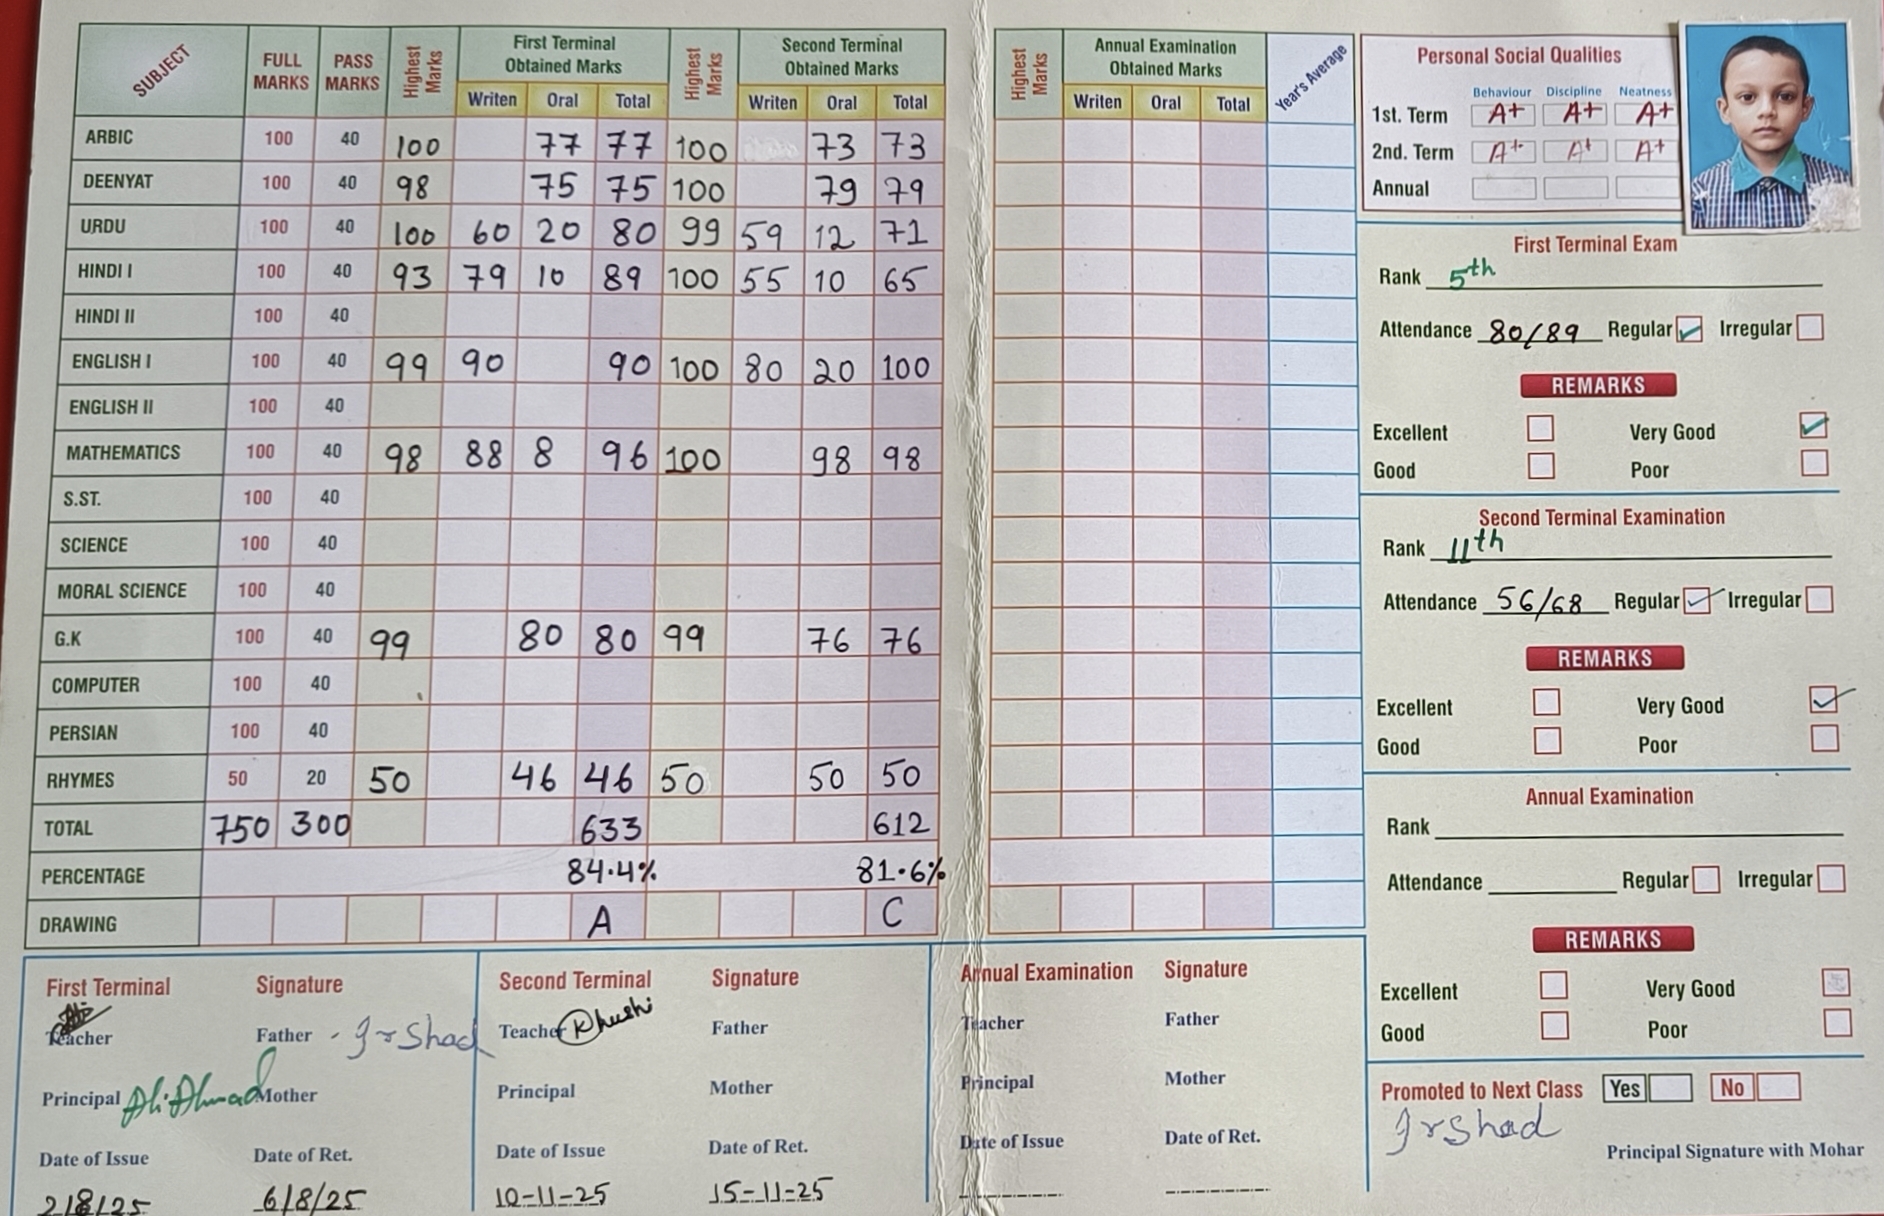 SUBJECT FULL MARKS PASS MARKS Highest Marks First Terminal Obtained Marks Highest Marks Second Terminal Obtained Marks
Writen Oral Total Writen Oral Total
ARBIC 100 40 100 77 77 100 73 73
DEENYAT 100 40 98 75 75 100 79 79
URDU 100 40 100 60 20 80 99 59 12 71
HINDI I 100 40 93 79 10 89 100 55 10 65
HINDI II 100 40
ENGLISH I 100 40 99 90 90 100 80 20 100
ENGLISH II 100 40
MATHEMATICS 100 40 98 88 8 96 100 98 98
S.ST. 100 40
SCIENCE 100 40
MORAL SCIENCE 100 40
G.K 100 40 99 80 80 99 76 76
COMPUTER 100 40
PERSIAN 100 40
RHYMES 50 20 50 46 46 50 50 50
TOTAL 750 300 633 612
PERCENTAGE 84.4% 81.6%
DRAWING A C
Highest Marks Annual Examination Obtained Marks Year's Average
Writen Oral Total
Personal Social Qualities
Behaviour Discipline Neatness
1st. Term A+ A+ A+
2nd. Term A+ A+ A+
Annual
First Terminal Exam
Rank 5th
Attendance 80/89 Regular Irregular
REMARKS
Excellent Very Good
Good Poor
Second Terminal Examination
Rank 11th
Attendance 56/68 Regular Irregular
REMARKS
Excellent Very Good
Good Poor
Annual Examination
Rank
Attendance Regular Irregular
REMARKS
Excellent Very Good
Good Poor
Promoted to Next Class Yes No
Irshad
Principal Signature with Mohar
First Terminal Signature
Teacher Father - Irshad
Principal Ali Ahmad Mother
Date of Issue Date of Ret.
2/8/25 6/8/25
Second Terminal Signature
Teacher Khushi Father
Principal Mother
Date of Issue Date of Ret.
10-11-25 15-11-25
Annual Examination Signature
Teacher Father
Principal Mother
Date of Issue Date of Ret.